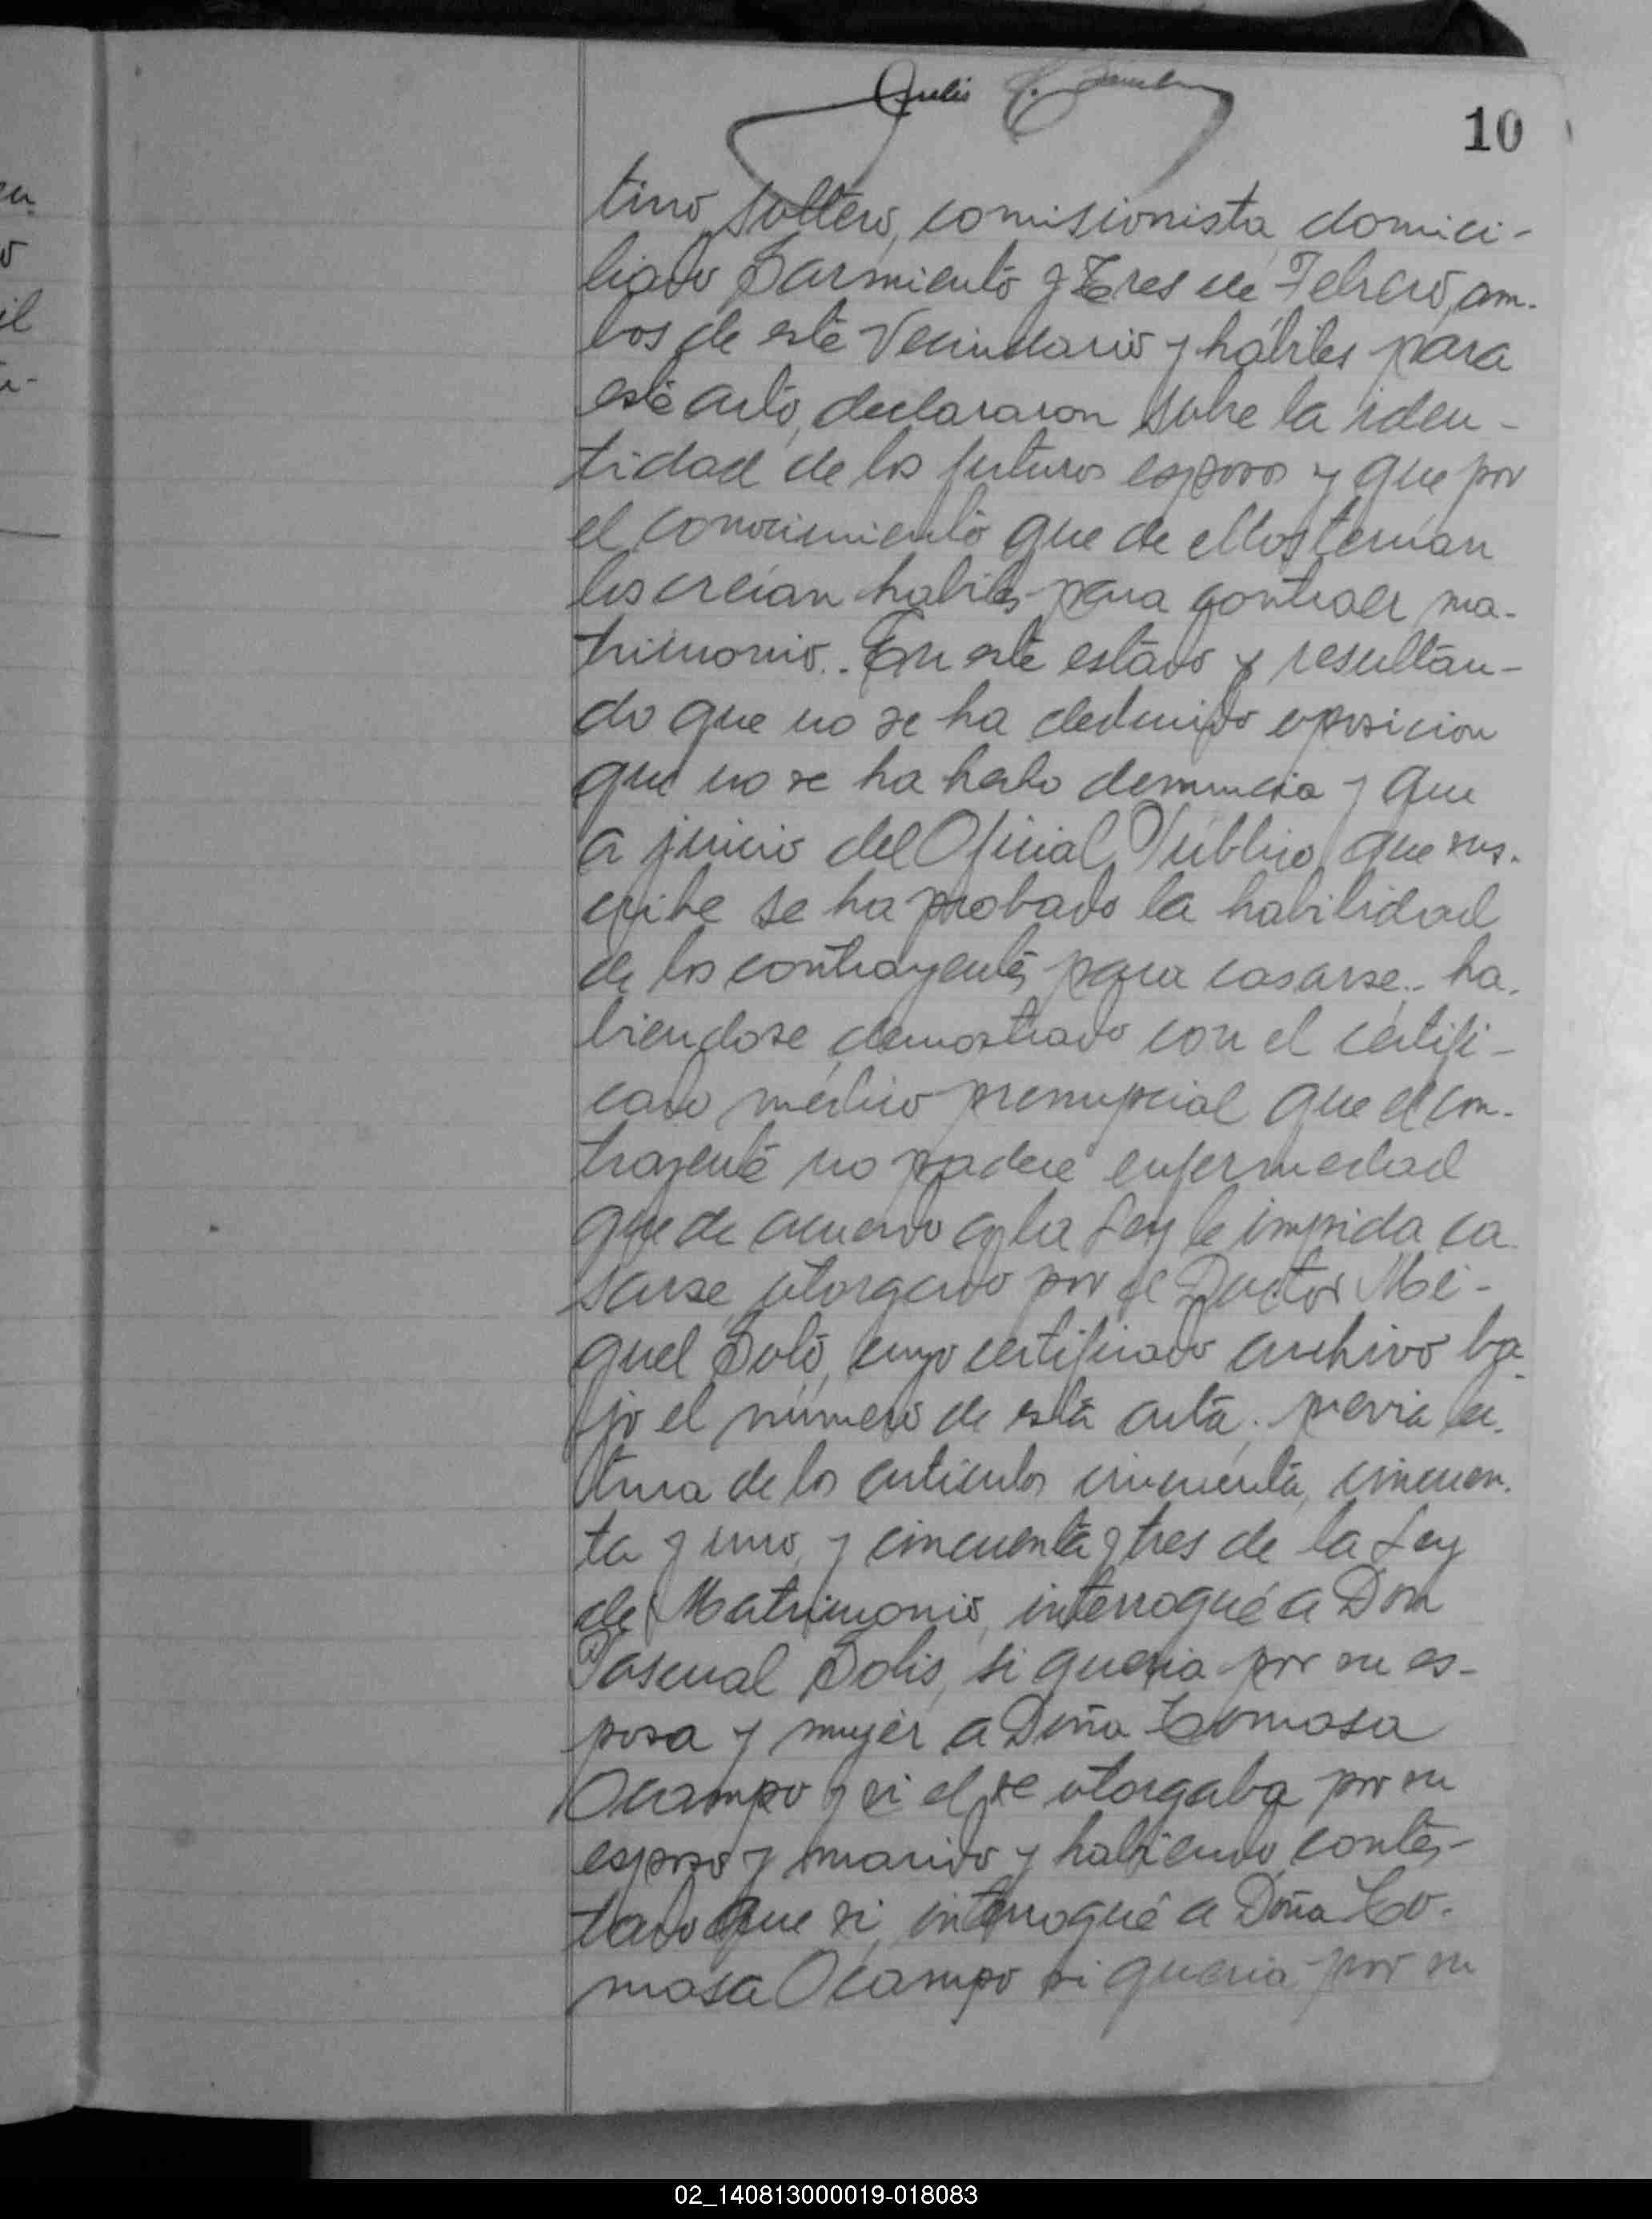 Julio
10
tino, soltero, comisionista, domici-
liado Sarmiento y Tres de Febrero, am-
bos de este Vecindario y hábiles para
este acto, declararon sobre la iden-
tidad de los futuros esposos y que por
el conocimiento que de ellos tenían
los creían habiles para contraer ma-
trimonio.. En este estado y resultan-
do que no se ha deducido oposicion
que no se ha hecho denuncia y que
a juicio del Oficial Público que sus-
cribe se ha probado la habilidad
de los contrayentes para casarse.. ha-
biendose demostrado con el certifi-
cado médico prenupcial que el con-
trayente no padece enfermedad
que de acuerdo a la Ley le impida ca
sarse, otorgado por el Doctor Mi-
guel Soló, cuyo certificado archivo ba-
jo el número de esta acta; previa lec-
tura de los articulos cincuenta, cincuen-
ta y uno, y cincuenta y tres de la Ley
de Matrimonio, interrogué a Don
Pascual Solis, si queria por su es-
posa y mujer a Doña Tomasa
Ocampo y si el se otorgaba por su
esposo y marido y habiendo contes-
tado que si, interrogué a Doña To-
masa Ocampo si queria por su
02_140813000019-018083